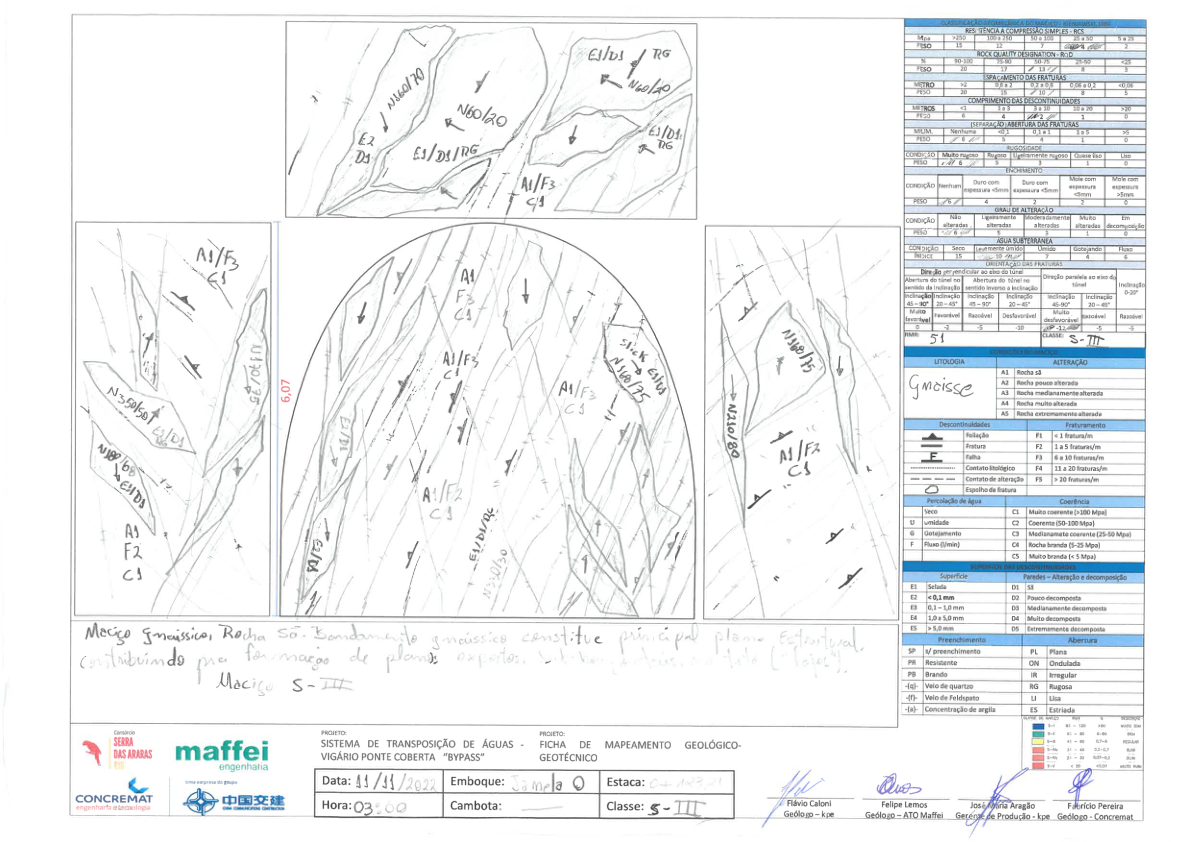 N160/70
E2
D1
N60/20
E1/D1/RG
E1/D1
RG
N60/20
E1/D1
RG
A1/F3
C1
A1/F3
C1
N350/50
E1/D1
E1/D1
A1
F2
C1
6,07
A1
F3
C1
A1/F3
C1
A1/F3
C1
A1/F2
C1
E1/D1
E2/D1
E1/D1/RG
Slick
N160/75
E1/D1
N160/75
N210/80
A1/F2
C1
Maciço gnáissico, Rocha Sã. Bandamento gnáissico constitue principal plano Estrutural,
contribuindo pra formação de planos expostos.
Maciço S-III
RESISTÊNCIA A COMPRESSÃO SIMPLES - RCS
Mpa >250 100 a 250 50 a 100 25 a 50 5 a 25
PESO 15 12 7 4 2
ROCK QUALITY DESIGNATION - RQD
% 90-100 75-90 50-75 25-50 <25
PESO 20 17 13 8 3
ESPAÇAMENTO DAS FRATURAS
METRO >2 0,6 a 2 0,2 a 0,6 0,06 a 0,2 <0,06
PESO 20 15 10 8 5
COMPRIMENTO DAS DESCONTINUIDADES
METROS <1 1 a 3 3 a 10 10 a 20 >20
PESO 6 4 2 1 0
(SEPARAÇÃO) ABERTURA DAS FRATURAS
MILIM. Nenhuma <0,1 0,1 a 1 1 a 5 >5
PESO 6 5 4 1 0
RUGOSIDADE
CONDIÇÃO Muito rugoso Rugoso Ligeiramente rugoso Quase liso Liso
PESO 6 5 3 1 0
ENCHIMENTO
CONDIÇÃO Nenhum Duro com espessura <5mm Duro com espessura <5mm Mole com espessura <5mm Mole com espessura >5mm
PESO 6 4 2 2 0
GRAU DE ALTERAÇÃO
CONDIÇÃO Não alteradas Ligeiramente alteradas Moderadamente alteradas Muito alteradas Em decomposição
PESO 6 5 3 1 0
ÁGUA SUBTERRÂNEA
CONDIÇÃO Seco Levemente úmido Úmido Gotejando Fluxo
ÍNDICE 15 10 7 4 6
ORIENTAÇÃO DAS FRATURAS
Direção perpendicular ao eixo do túnel
Direção paralela ao eixo do túnel
Inclinação 0-20°
Abertura do túnel no sentido da inclinação
Abertura do túnel no sentido inverso a inclinação
Inclinação 45 – 90° Inclinação 20 – 45° Inclinação 45 – 90° Inclinação 20 – 45° Inclinação 45-90° Inclinação 20 – 45°
Muito favorável Favorável Razoável Desfavorável Muito desfavorável Razoável Razoável
0 -2 -5 -10 -12 -5 -5
RMR: 51 CLASSE: S-III
LITOLOGIA ALTERAÇÃO
Gnaisse
A1 Rocha sã
A2 Rocha pouco alterada
A3 Rocha medianamente alterada
A4 Rocha muito alterada
A5 Rocha extremamente alterada
Descontinuidades Fraturamento
Foliação F1 < 1 fratura/m
Fratura F2 1 a 5 fraturas/m
F Falha F3 6 a 10 fraturas/m
Contato litológico F4 11 a 20 fraturas/m
Contato de alteração F5 > 20 fraturas/m
Espelho de fratura
Percolação de água Coerência
Seco C1 Muito coerente (>100 Mpa)
U umidade C2 Coerente (50-100 Mpa)
G Gotejamento C3 Medianamete coerente (25-50 Mpa)
F Fluxo (l/min) C4 Rocha branda (5-25 Mpa)
C5 Muito branda (< 5 Mpa)
SUPERFÍCIE DAS DESCONTINUIDADES
Superfície Paredes – Alteração e decomposição
E1 Selada D1 Sã
E2 < 0,1 mm D2 Pouco decomposta
E3 0,1 – 1,0 mm D3 Medianamente decomposta
E4 1,0 a 5,0 mm D4 Muito decomposta
E5 > 5,0 mm D5 Extremamente decomposta
Preenchimento Abertura
SP s/ preenchimento PL Plana
PR Resistente ON Ondulada
PB Brando IR Irregular
-(q)- Veio de quartzo RG Rugosa
-(f)- Veio de Feldspato LI Lisa
-(a)- Concentração de argila ES Estriada
Consórcio
SERRA
DAS ARARAS
maffei
engenharia
CONCREMAT
engenharia e tecnologia
uma empresa do grupo
中国交建
PROJETO:
SISTEMA DE TRANSPOSIÇÃO DE ÁGUAS -
VIGÁRIO PONTE COBERTA "BYPASS"
PROJETO:
FICHA DE MAPEAMENTO GEOLÓGICO-
GEOTÉCNICO
Data: 11/11/2022 Emboque: Janela O Estaca:
Hora: 03:00 Cambota: Classe: S-III
Flávio Caloni
Geólogo – kpe
Felipe Lemos
Geólogo – ATO Maffei
José Maria Aragão
Gerente de Produção - kpe
Fabrício Pereira
Geólogo - Concremat